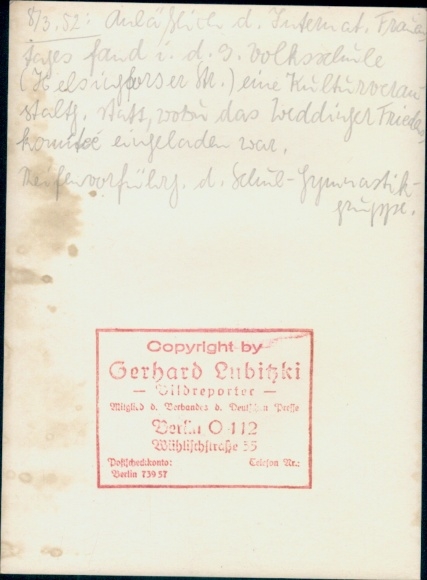 8/3.52: Anläßlich d. Internat. Frauen
tages fand i. d. 3. Volksschule
(Helsingforser Str.) eine Kulturveran
staltg. statt, wozu das Weddinger Friedens
komitee eingeladen war.
Reifenvorführg. d. Schul-Gymnastik-
gruppe.
Copyright by
Gerhard Lubitzki
— Bildreporter —
Mitglied d. Verbandes d. Deutschen Presse
Berlin O 112
Wühlischstraße 55
Postscheckkonto: Telefon Nr.:
Berlin 739 57